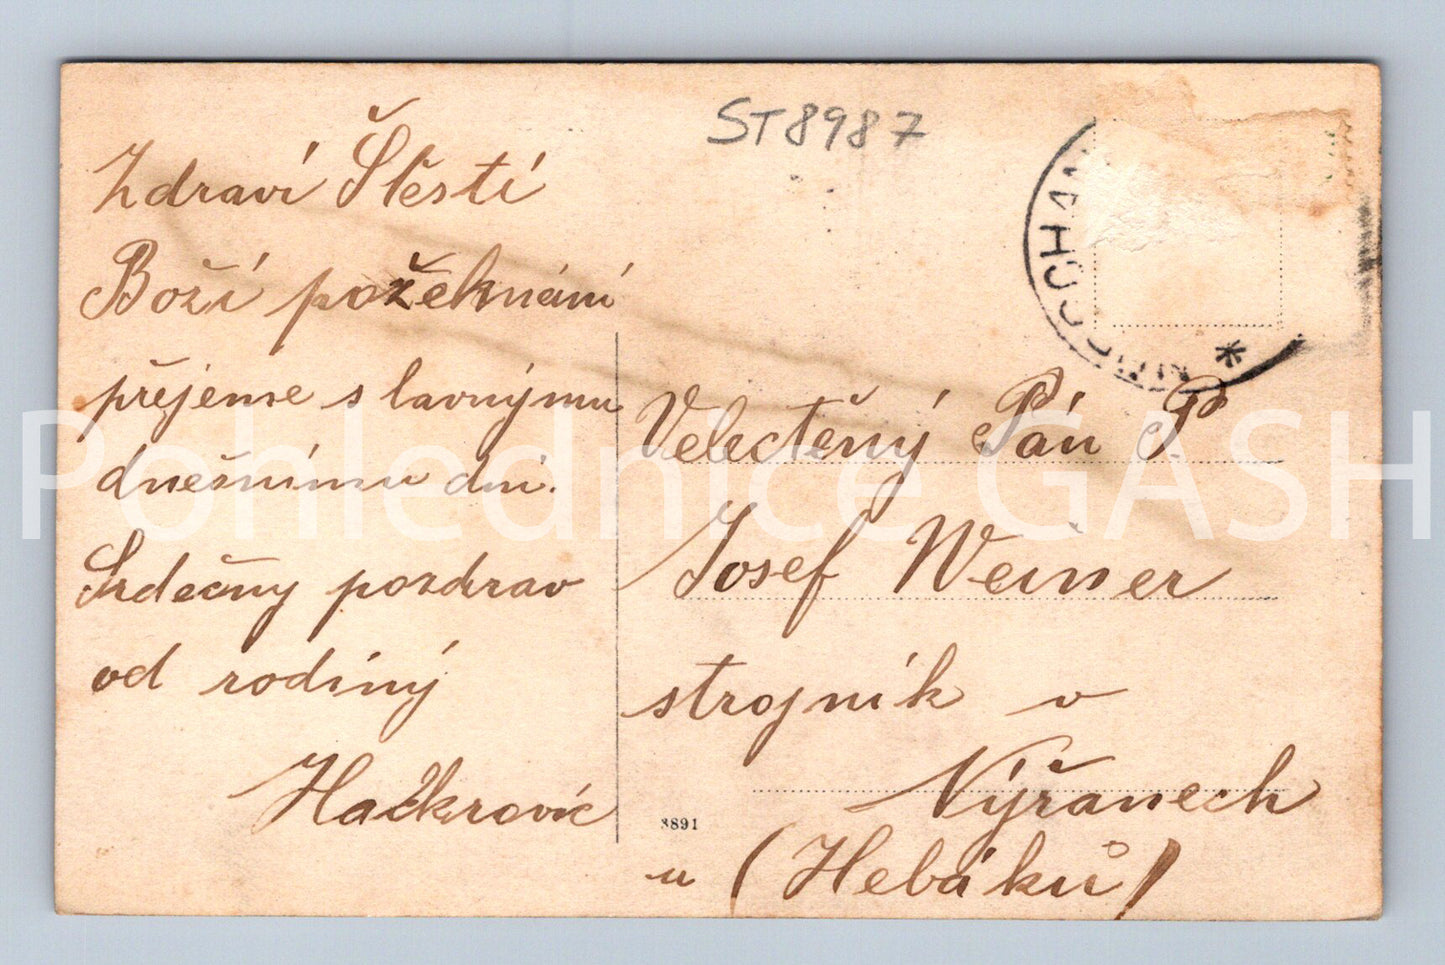 ST8987
Zdraví Štěstí
Boží požeknání
přejeme s lavnýmu
dnešnímu dni.
Srdečný pozdrav
od rodiný
Hačkrovic
Velectěný Pán P.
Josef Weiner
strojník v
Nýřanech
u (Hebáků)
3891
Pohlednice GASH